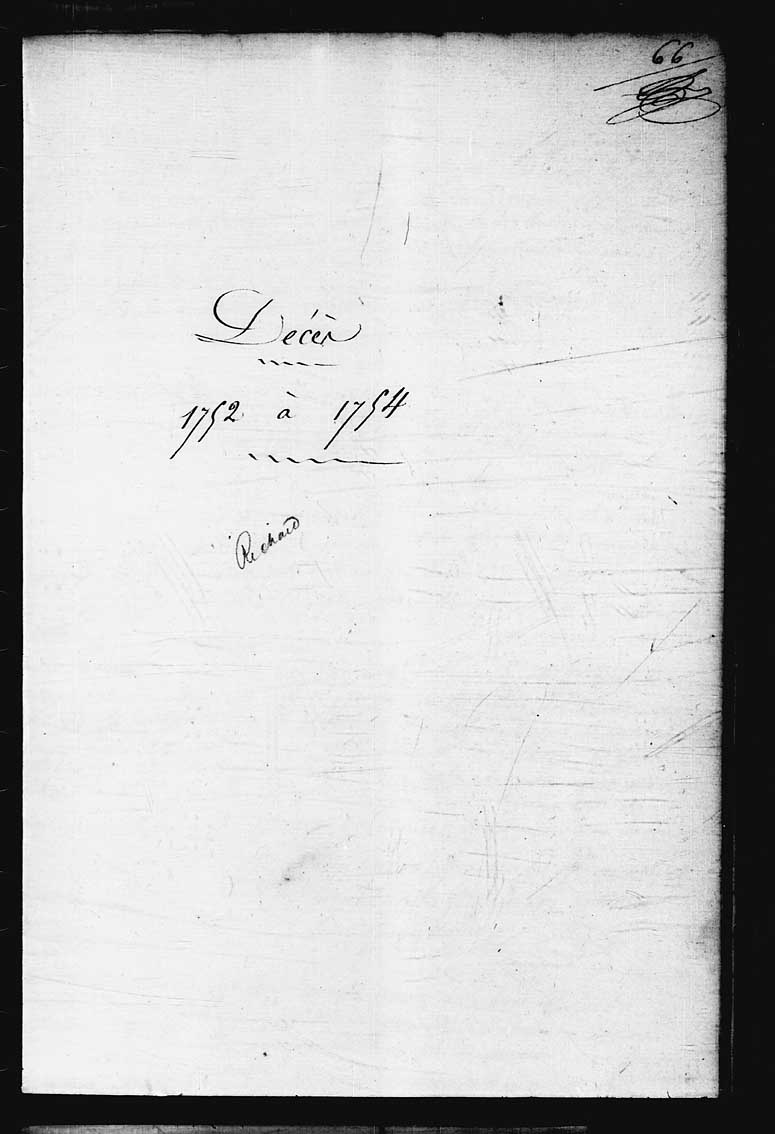 66
Décès
1752 à 1754
Richard